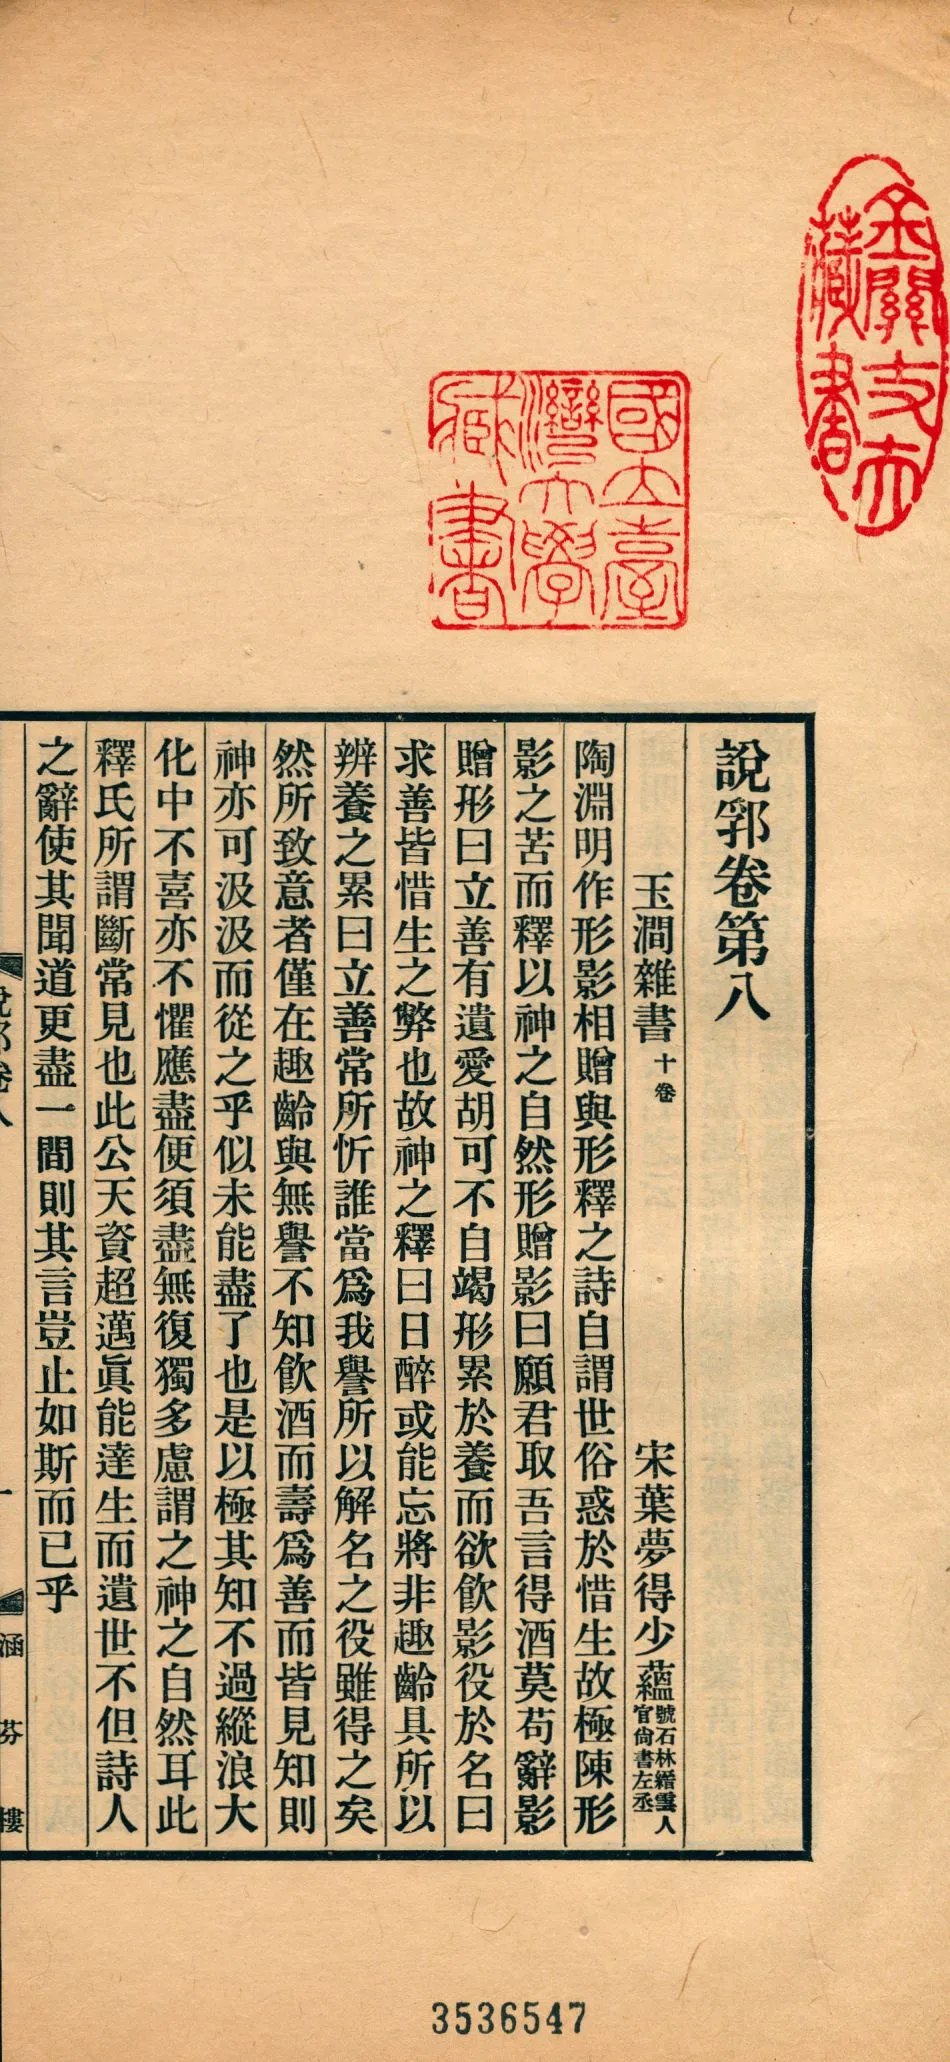 說郛卷第八
玉澗雜書十卷 宋葉夢得少蘊號石林縉雲人官尙書左丞
陶淵明作形影相贈與形釋之詩自謂世俗惑於惜生故極陳形
影之苦而釋以神之自然形贈影曰願君取吾言得酒莫苟辭影
贈形曰立善有遺愛胡可不自竭形累於養而欲飮影役於名曰
求善皆惜生之弊也故神之釋曰日醉或能忘將非趣齡具所以
辨養之累曰立善常所忻誰當爲我譽所以解名之役雖得之矣
然所致意者僅在趣齡與無譽不知飮酒而壽爲善而皆見知則
神亦可汲汲而從之乎似未能盡了也是以極其知不過縱浪大
化中不喜亦不懼應盡便須盡無復獨多慮謂之神之自然耳此
釋氏所謂斷常見也此公天資超邁眞能達生而遺世不但詩人
之辭使其聞道更盡一間則其言豈止如斯而已乎
說郛卷八
一
涵芬樓
國立臺
灣大學
藏書
藏書
3536547